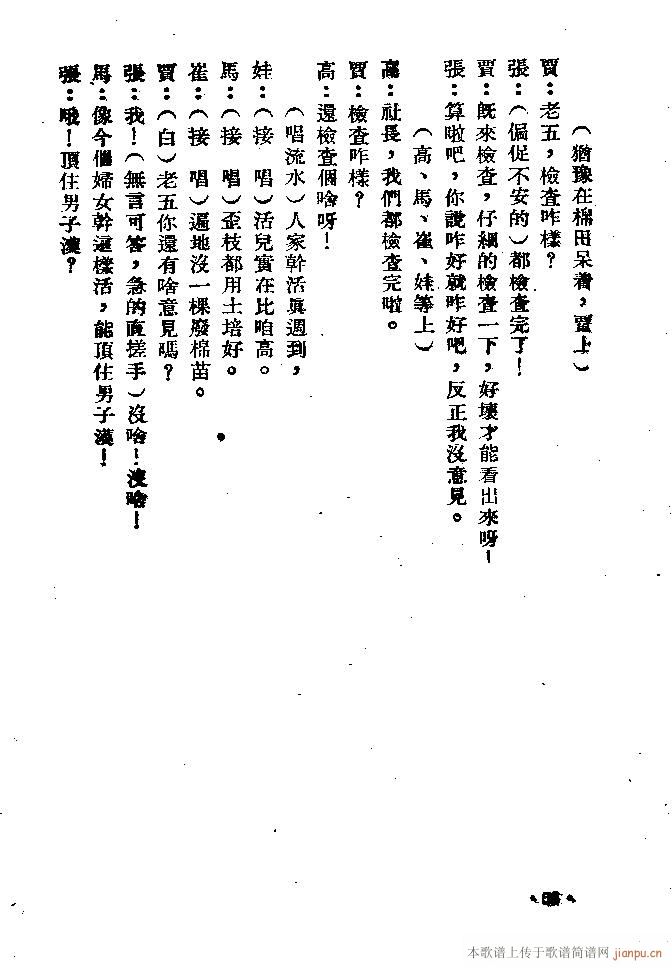 （猶豫在棉田呆着，賈上）
賈：老五，檢查咋樣？
張：（侷促不安的）都檢查完了！
賈：旣來檢查，仔細的檢查一下，好壞才能看出來呀！
張：算啦吧，你說咋好就咋好吧，反正我沒意見。
（高、馬、崔、娃等上）
高：社長，我們都檢查完啦。
賈：檢查咋樣？
高：還檢查個啥呀！
（唱流水）人家幹活眞週到，
娃：（接　唱）活兒實在比咱高。
馬：（接　唱）歪枝都用土培好。
崔：（接　唱）遍地沒一棵廢棉苗。
賈：（白）老五你還有啥意見嗎？
張：我！（無言可答，急的直搓手）沒啥！沒啥！
馬：像今個婦女幹這樣活，能頂住男子漢！
張：哦！頂住男子漢？
本歌谱上传于歌谱简谱网 jianpu.cn